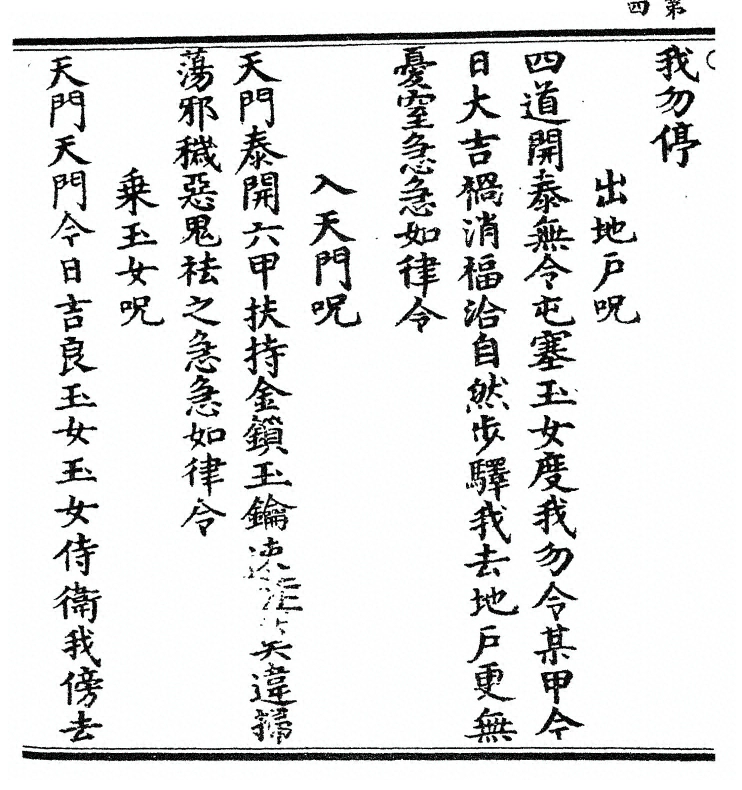 第
四
我勿停
出地戶呪
四道開泰無令屯塞玉女度我勿令某甲令
日大吉禍消福洽自然步驛我去地戶更無
憂窒急急如律令
入天門呪
天門泰開六甲扶持金鎖玉鑰速 莫違掃
蕩邪穢惡鬼祛之急急如律令
乗玉女呪
天門天門今日吉良玉女玉女侍衛我傍去